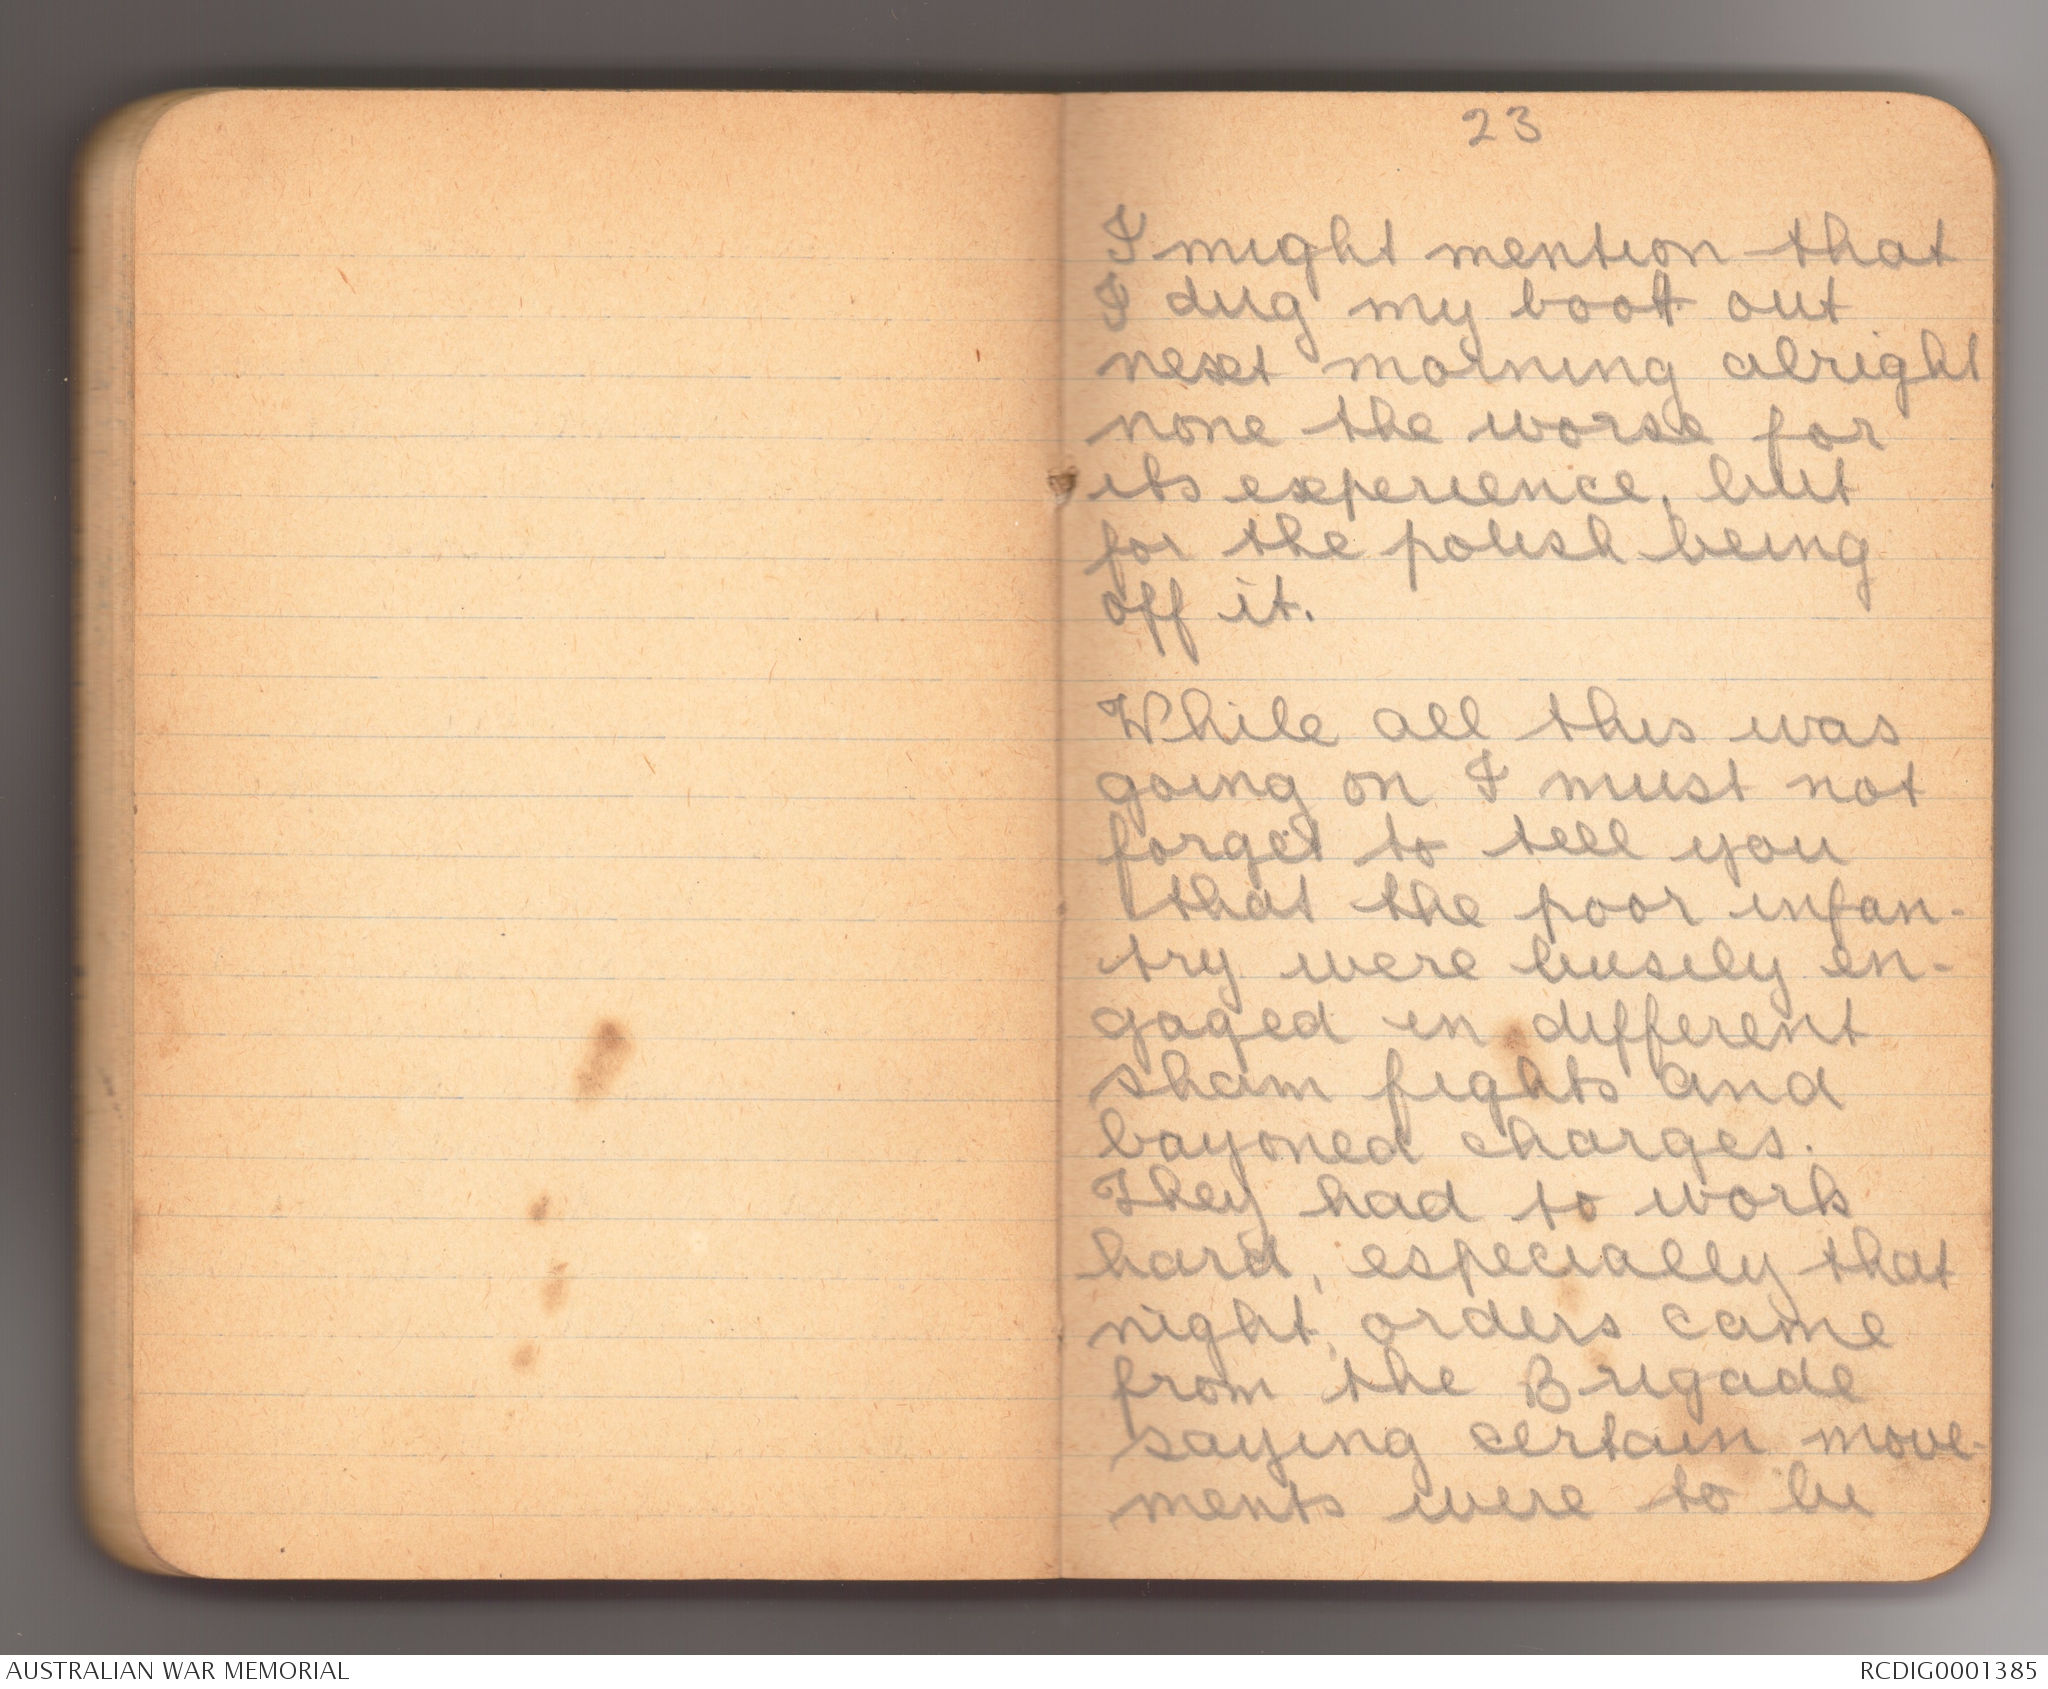 23
I might mention that
I dug my boot out
next morning alright
none the worse for
its experience, but
for the polish being
off it.
While all this was
going on I must not
forget to tell you
that the poor infan-
try were busily en-
gaged in different
sham fights and
bayoned charges.
They had to work
hard, especially that
night, orders came
from the Brigade
saying certain move-
ments were to be
AUSTRALIAN WAR MEMORIAL
RCDIG0001385